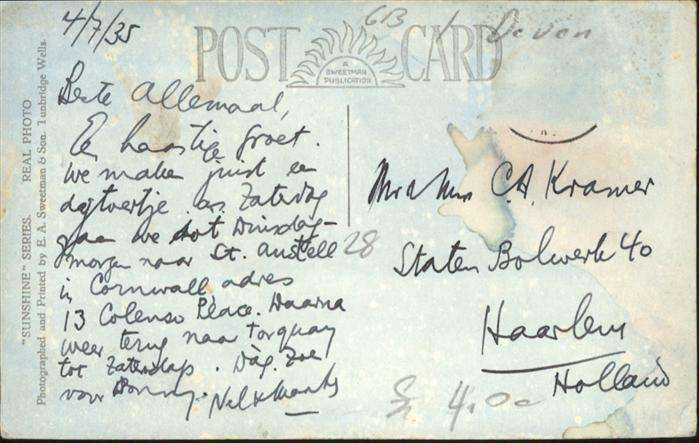 4/7/35
6B
Devon
POST CARD
A
SWEETMAN
PUBLICATION
"SUNSHINE" SERIES. REAL PHOTO
Photographed and Printed by E. A. Sweetman & Son. Tunbridge Wells.
Beste Allemaal,
En haastige groet.
We maken juist een
as Zaterdag
gaan we tot Dinsdag-
morgen naar St. Austell
in Cornwall, adres
13 Colenso Place. Daarna
weer terug naar Torquay
tot Zaterdag. Dàg. Zoen
voor
28
Mr & Mrs C.A. Kramer
Staten Bolwerk 40
Haarlem
Holland
4.00